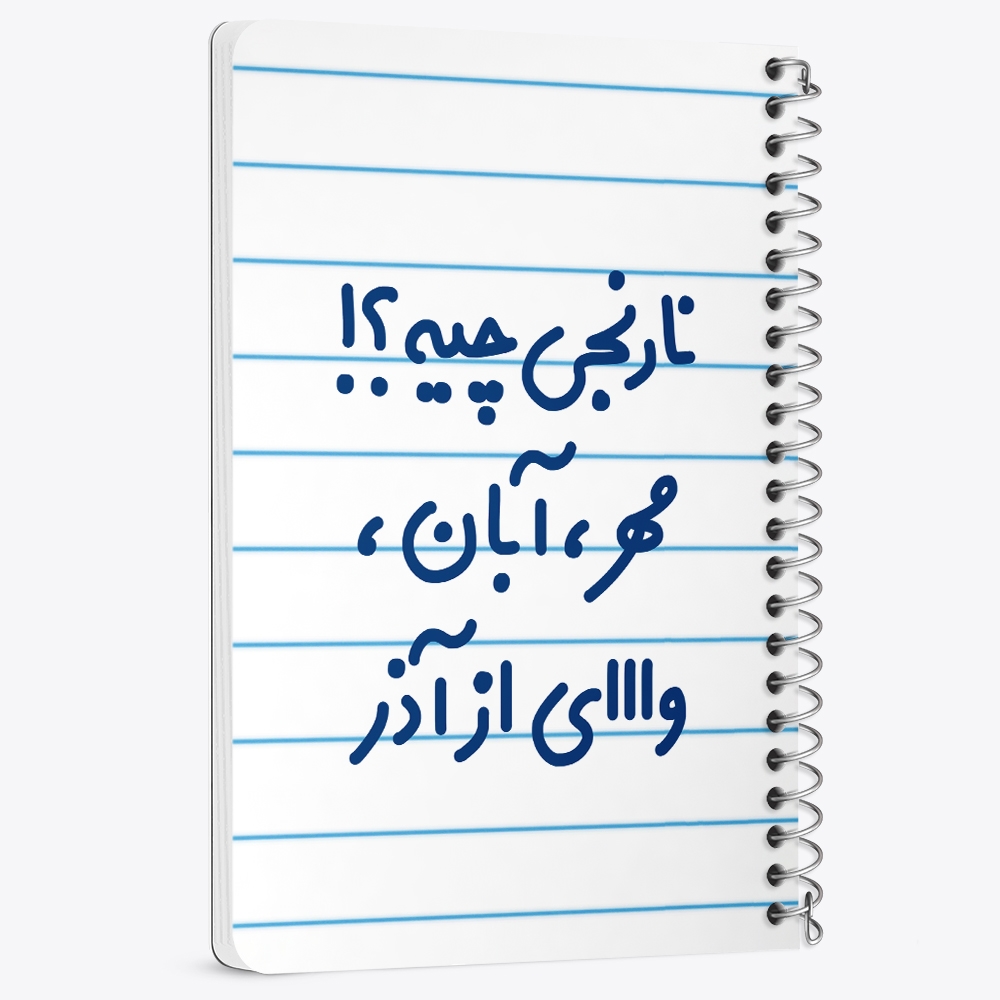 نارنجی چیه؟!
مهر، آبان،
واااای از آذر